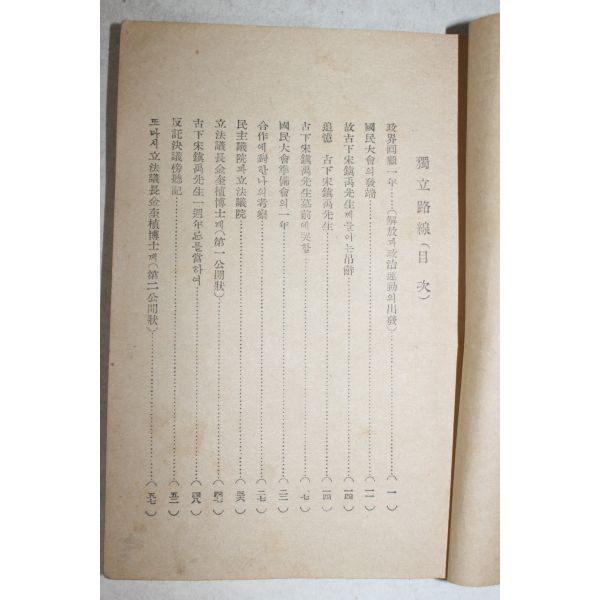 獨立路線(目次)
政界回顧一年……(解放과政治運動의出發)……(一)
國民大會의發端……(一一)
故古下宋鎭禹先生께들이는吊辭……(一四)
追憶 古下宋鎭禹先生……(一四)
古下宋鎭禹先生墓前에哭함……(一七)
國民大會準備會의一年……(二二)
合作에對한나의考察……(二七)
民主議院과立法議院……(三六)
立法議長金奎植博士께(第一公開狀)……(四七)
古下宋鎭禹先生一週年忌를當하여……(四八)
反託決議傍聽記……(五二)
또다시立法議長金奎植博士께(第二公開狀)……(五七)